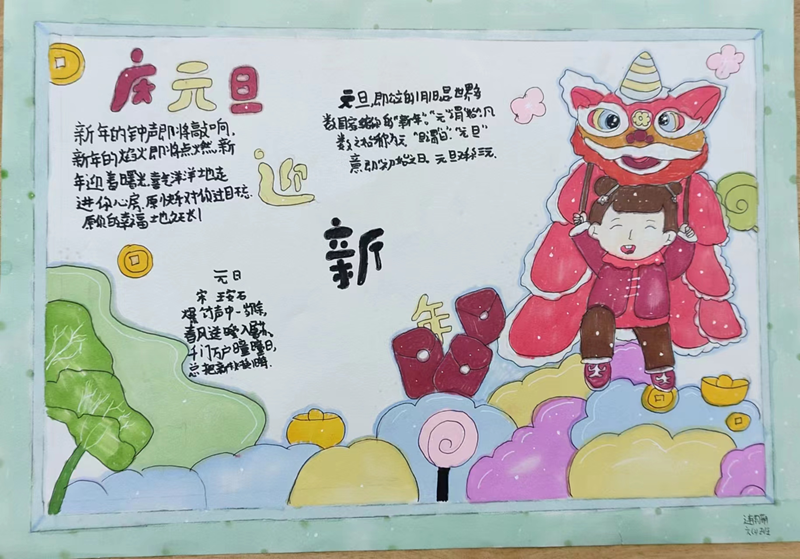 庆元旦
新年的钟声即将敲响,
新年的焰火即将点燃,新
年迎着曙光,喜气洋洋地走
进你心房,愿快乐对你过目不忘
愿你的幸福地久天长!
元旦,即公历的1月1日,是世界多
数国家
的"新年"。"元"谓"始",凡
数之始称为"元""旦"谓"日""元旦"
意即"初始之日"。元旦又称三元
迎
新
年
元日
宋 王安石
爆竹声中一岁除,
春风送暖入屠苏。
千门万户曈曈日,
总把新桃换旧符